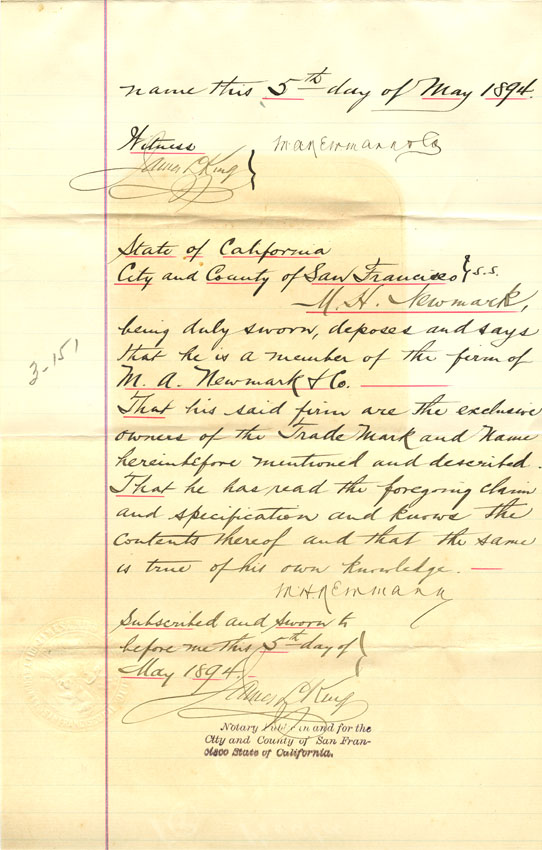 name this 5th day of May 1894.
Witness
M A Newmark & Co
James L King }
State of California
City and County of San Francisco } s.s.
M. H. Newmark,
being duly sworn, deposes and says
that he is a member of the firm of
M. A. Newmark & Co.
That his said firm are the exclusive
owners of the Trade Mark and Name
hereinbefore mentioned and described.
That he has read the foregoing claim
and specification and knows the
contents thereof and that the same
is true of his own knowledge.
M. H. Newmark
Subscribed and sworn to
before me this 5th day of
May 1894.
James L King
Notary Public in and for the
City and County of San Fran-
cisco State of California.
3-151